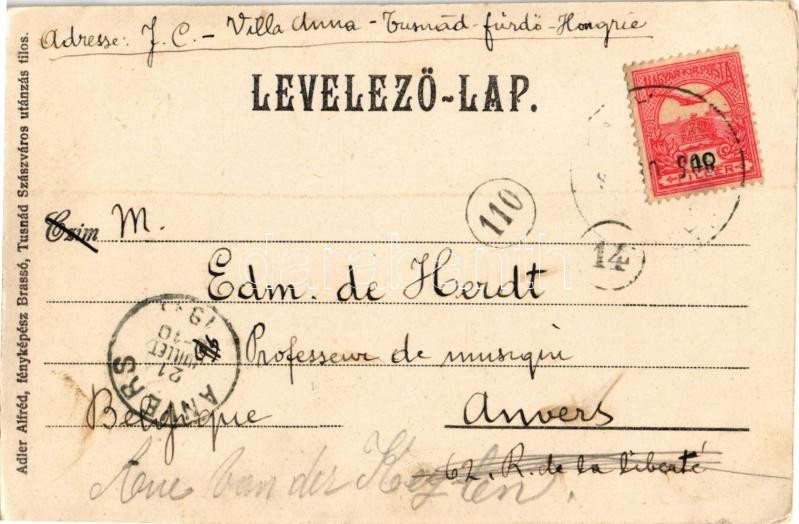 Adresse: J. C. - Villa Anna - Tusnád-fürdő - Hongrie
LEVELEZŐ-LAP.
MAGYAR KIR. POSTA
10
FILLÉR
110
14
Czim M.
Edm. de Herdt
Professeur de musiqui
Belgique Anvers
62, R. de la liberté
Rue Van der
ANVERS
21
JUILLET
10
19
Adler Alfréd, fényképész Brassó, Tusnád Szászváros utánzás tilos.
darabanth